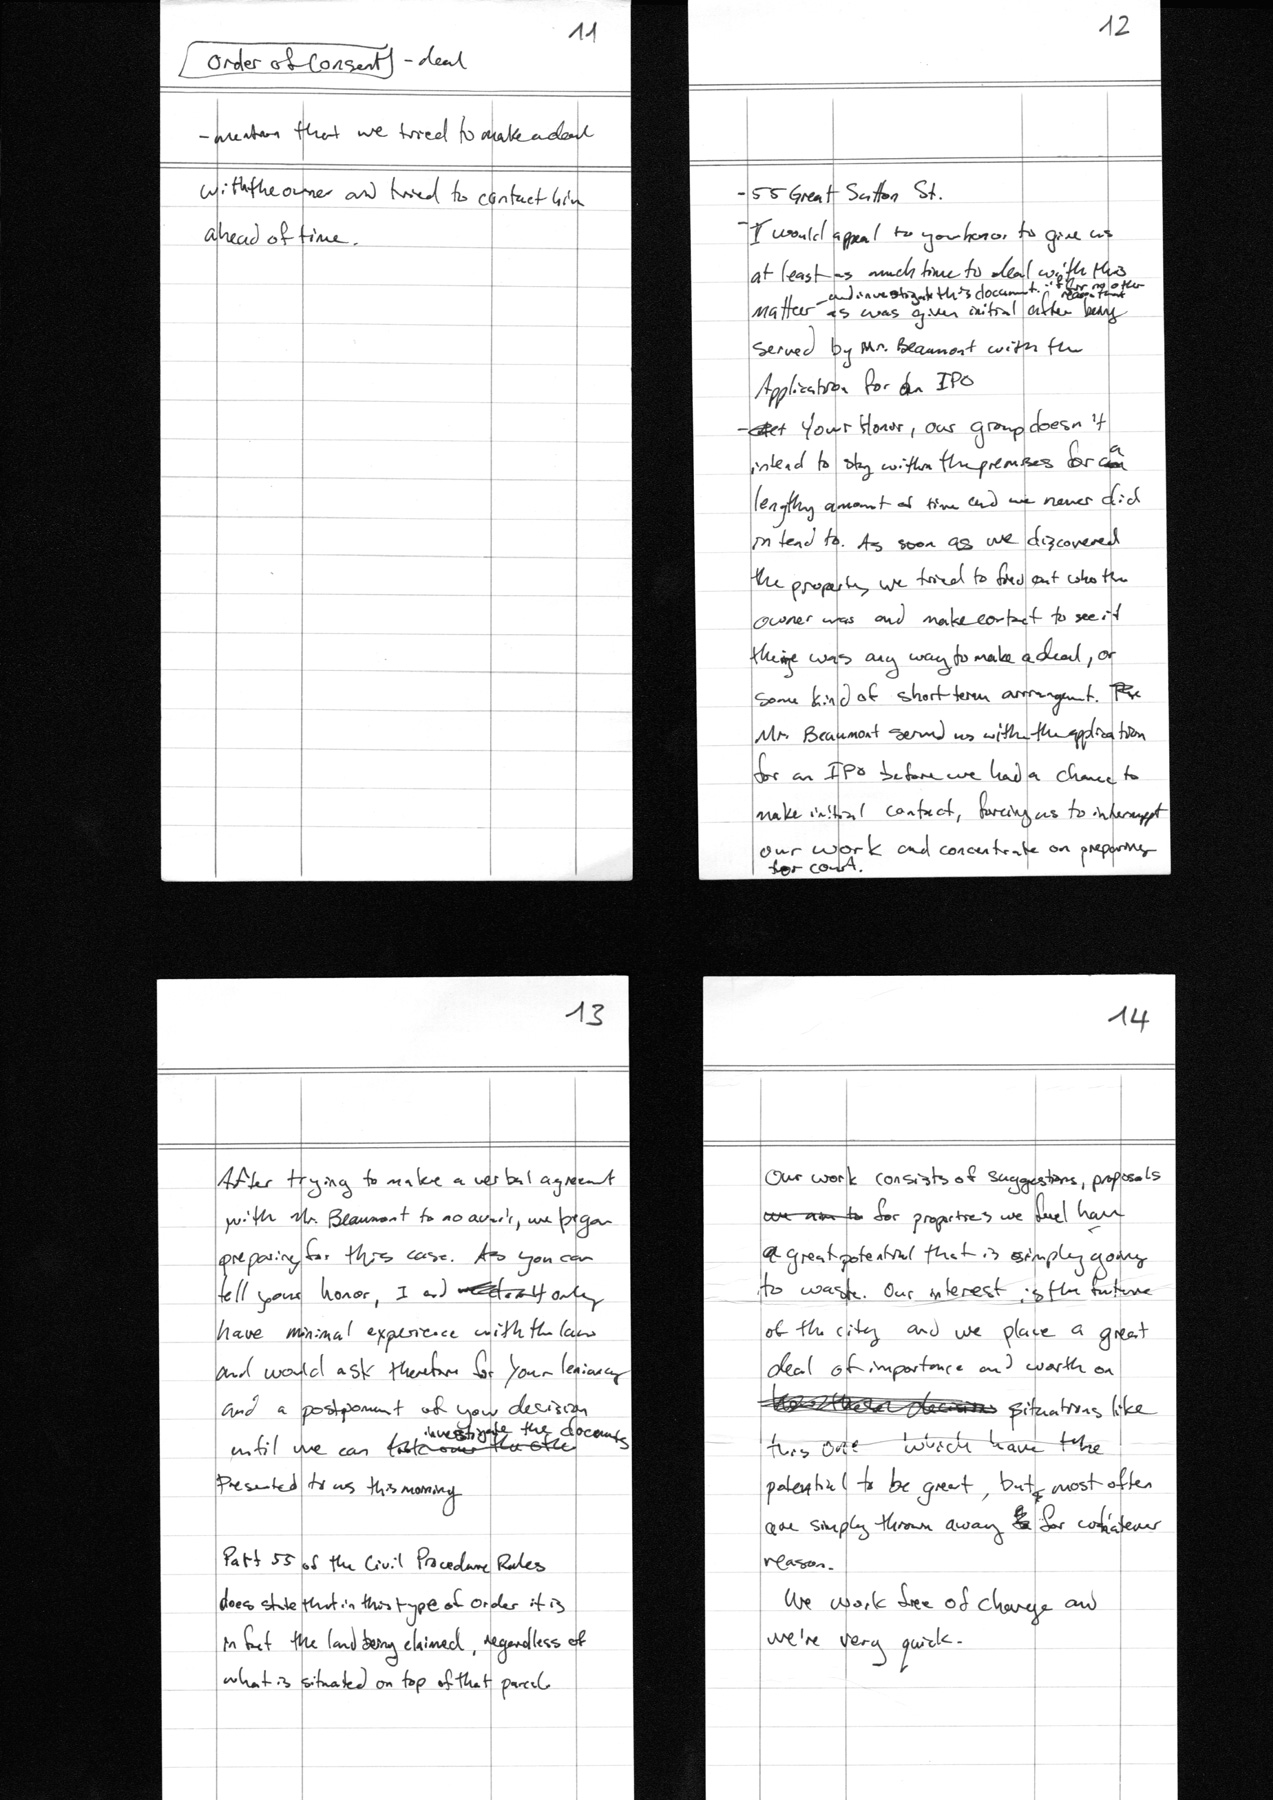 11
Order of Consent - deal
- mention that we tried to make a deal
with the owner and tried to contact him
ahead of time.
12
- 55 Great Sutton St.
- I would appeal to your honor to give us
at least as much time to deal with this
and investigate this document, if for no other
reason than
matter as was given initial after being
served by Mr. Beaumont with the
Application for an IPO
- Your Honor, our group doesn't
intend to stay within the premises for a
lengthy amount of time and we never did
intend to. As soon as we discovered
the property, we tried to find out who the
owner was and make contact to see if
there was any way to make a deal, or
some kind of short term arrrangemt.
Mr. Beaumont served us with the application
for an IPO before we had a chance to
make initial contact, forcing us to interruppt
our work and concentrate on preparing
for court.
13
After trying to make a verbal agreement
with Mr. Beaumont to no avail, we began
preparing for this case. As you can
tell your honor, I and only
have minimal experience with the law
and would ask therefore for your leniancy
and a postponment of your decision
investigate the documents
until we can
Presented to us this morning
Part 55 of the Civil Procedure Rules
does state that in this type of order it is
in fact the land being claimed, regardless of
what is situated on top of that parcel
14
Our work consists of suggestions, proposals
we aim to for properties we feel have
a great potential that is simply going
to waste. Our interest is the future
of the city and we place a great
deal of importance and worth on
situations like
this one which have the
potential to be great, but most often
are simply thrown away for whatever
reason.
We work free of charge and
we're very quick.